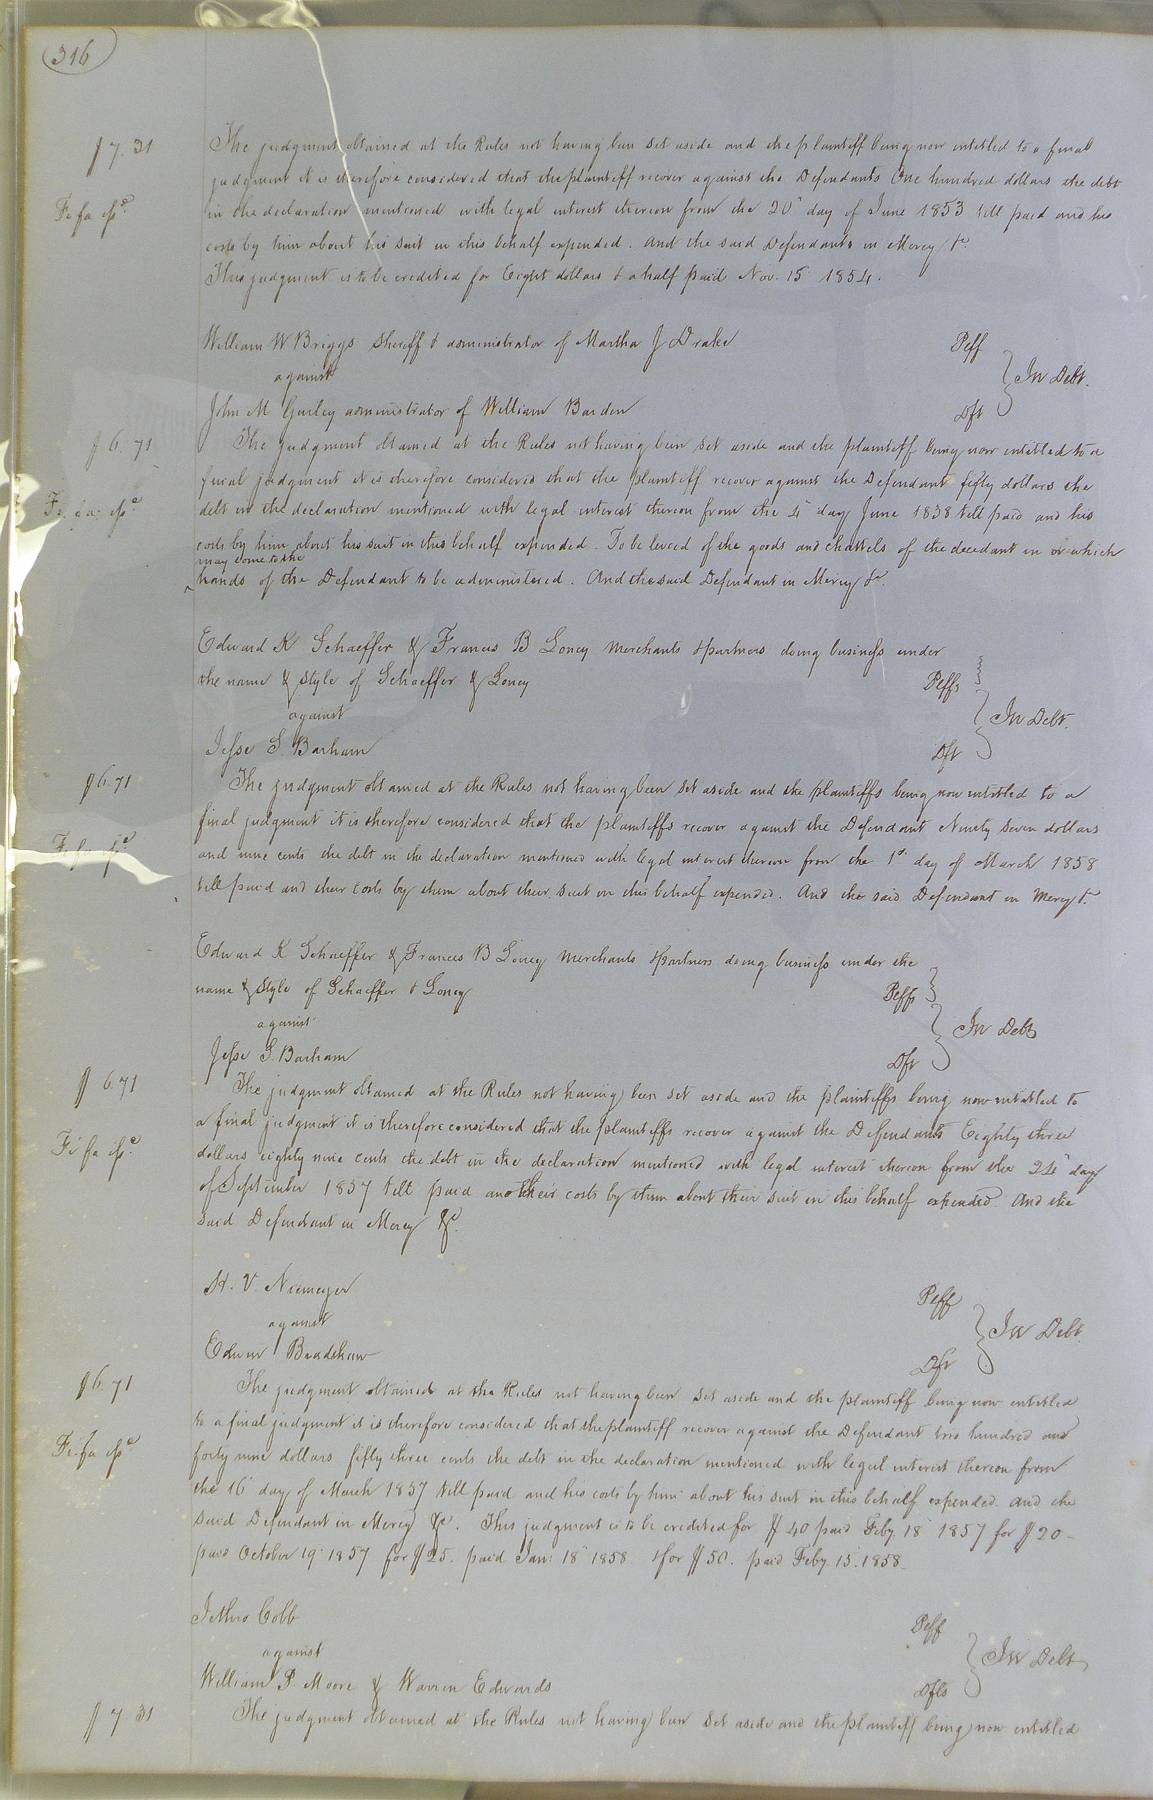 316
$7.31
The judgment obtained at the Rules not having been set aside and the plaintiff being now intitled to a final
judgment it is therefore considered that the plaintiff recover against the Defendants One hundred dollars the debt
Fi fa
in the declaration mentioned with legal interest thereon from the 20" day of June 1853 till paid and his
costs by him about his suit in this behalf expended. And the said Defendants in Mercy &c.
This judgment is to be credited for Eight dollars & a half paid Nov. 15 1854.
William W Briggs Sheriff & administrator of Martha J Drake Plff
against In Debt.
John M Gurley administrator of William Barden Dft
$6.71
The judgment obtained at the Rules not having been set aside and the plaintiff being now intitled to a
final judgment it is therefore considered that the plaintiff recover against the Defendant fifty dollars the
Fi. fa.
debt in the declaration mentioned with legal interest thereon from the 4" day June 1838 till paid and his
costs by him about his suit in this behalf expended. To be levied of the goods and chattels of the decedant in or which
may come to the
hands of the Defendant to be administered. And the said Defendant in Mercy &c.
Edward K Schaeffer & Francis B Loney Merchants & partners doing business under
the name & style of Schaeffer & Loney Plffs
against In Debt.
Jesse S. Barham Dft
$6.71
The judgment obtained at the Rules not having been set aside and the plaintiffs being now intitled to a
final judgment it is therefore considered that the plaintiffs recover against the Defendant Ninety seven dollars
Fi fa
and nine cents the debt in the declaration mentioned with legal interest thereon from the 1st day of March 1858
till paid and their costs by them about their suit in this behalf expended. And the said Defendant in Mercy &c.
Edward K Schaeffer & Frances B Loney Merchants & partners doing business under the
name & style of Schaeffer & Loney Plffs
against In Debt
Jesse S. Barham Dft
$6.71
The judgment obtained at the Rules not having been set aside and the plaintiffs being now intitled to
a final judgment it is therefore considered that the plaintiffs recover against the Defendants Eighty three
Fi fa
dollars eighty nine cents the debt in the declaration mentioned with legal interest thereon from the 24" day
of September 1857 till paid and their costs by them about their suit in this behalf expended. And the
said Defendant in Mercy &c.
H. V. Niemeyer Plff
against In Debt.
Edwin Bradshaw Dft
$6.71
The judgment obtained at the Rules not having been set aside and the plaintiff being now intitled
to a final judgment it is therefore considered that the plaintiff recover against the Defendant two hundred and
Fi. fa
forty nine dollars fifty three cents the debt in the declaration mentioned with legal interest thereon from
the 16" day of March 1857 till paid and his costs by him about his suit in this behalf expended. And the
said Defendant in Mercy &c. This judgment is to be credited for $40 paid Feby 18 1857 for $20 -
paid October 19" 1857 for $25. paid Jan: 18" 1858 & for $50. paid Feby. 15. 1858.
Jethro Cobb Plff
against In Debt
William P. Moore & Warren Edwards Dfts
$7.31
The judgment obtained at the Rules not having been set aside and the plaintiff being now intitled